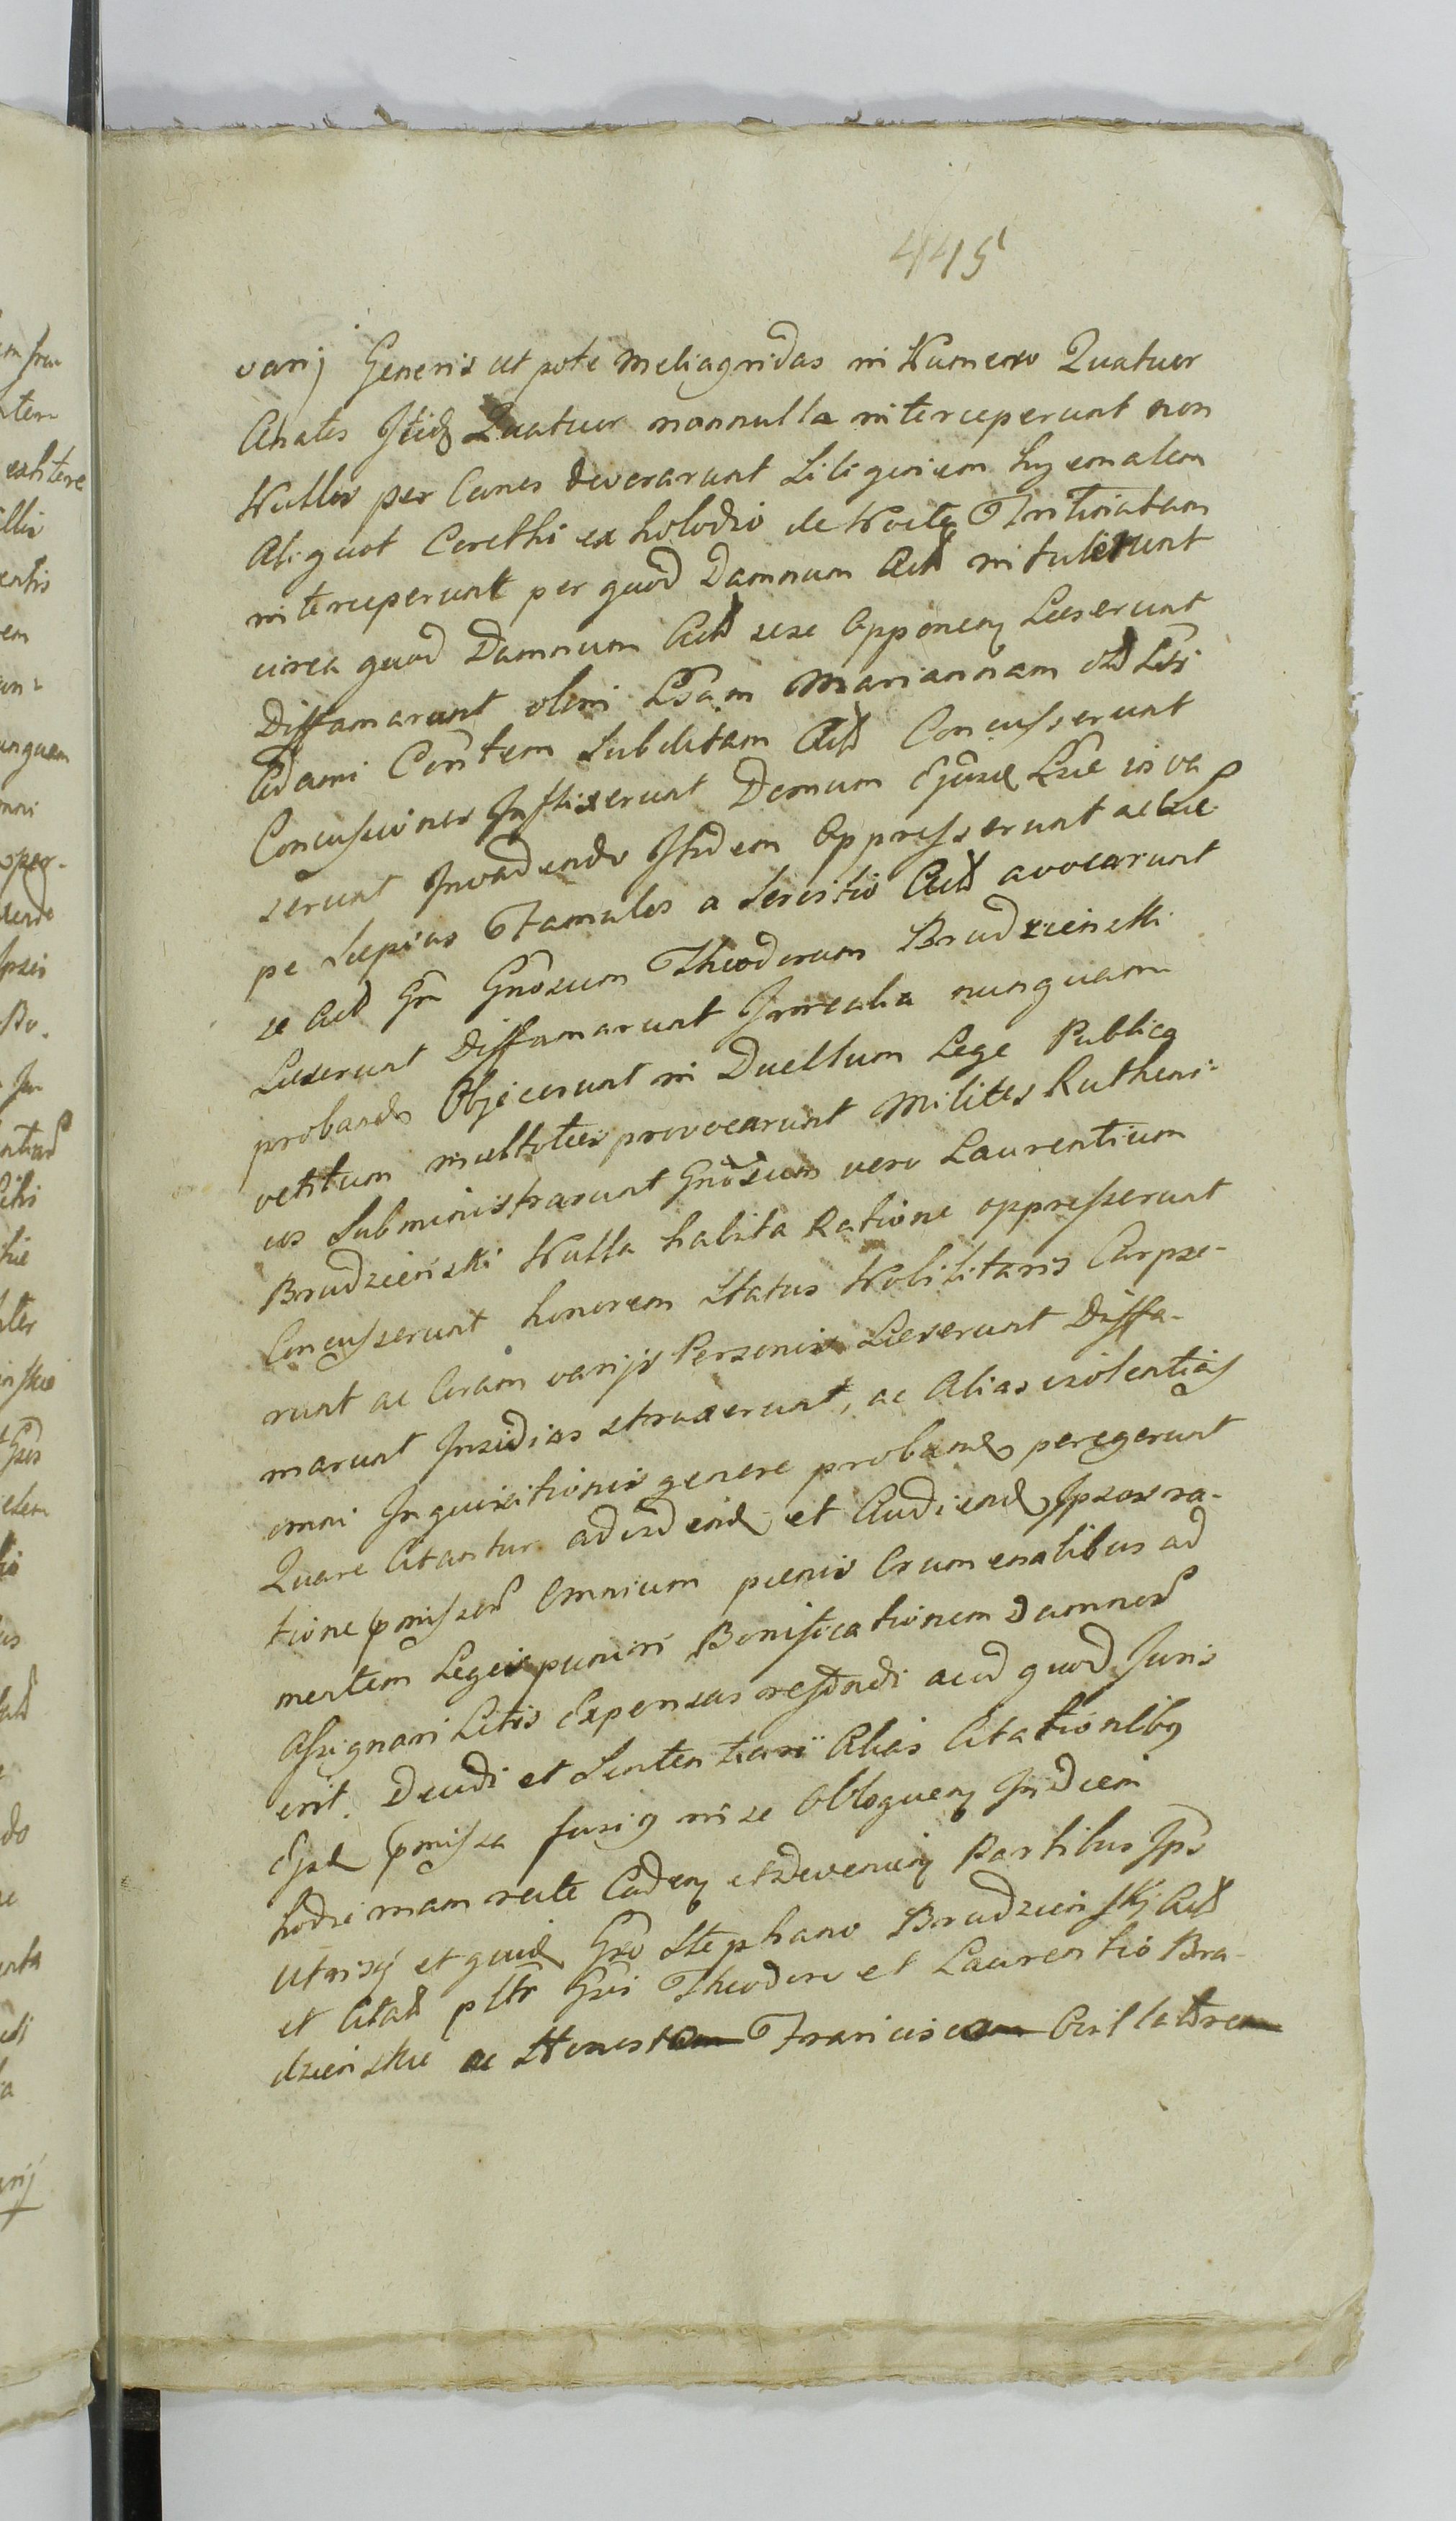 445
varij Generis ut pote Meliagridas in Numero Quatuor
Anates Itidẽ Quatuor nonnulla interceperunt non
Nullos per Canes devorarunt Siliginem hyemalem
Aliquot Corethi ex holodio de Nocte Trituratam
interceperunt per quod Damnum Act intulerunt
circa quod Damnum Act sese Opponen Læserunt
Diffamarunt olim Lsam Mariannam
Adami Contem Subditam Act Concusserunt
Concussiones Inflixerunt Domum Ejusd Lsæ inva
serunt Invadendo Ibidem Oppresserunt ac sæ
pe sæpius Famulos a Servitio Act avocarunt
se Act Gnosum Theodorum Brudzienski
Læserunt Diffamarunt Irrealia nunquam
probands Objecerunt in Duellum Lege Publica
vetitum multoties provocarunt Milites Rutheni-
cos Subministrarunt Gnosum vero Laurentium
Brudzieński Nulla habita Ratione oppresserunt
Concusserunt honorem Status Nobilitaris Carpse-
runt ac Coram varijs Personis Læserunt Diffa-
marunt Insidias struxerunt, ac Alias violentias
omni Inquisitionis genere probands peregerunt
Quare Citantur ad vidend et Audiend Ipsos ra-
tione pmissor Omnium pœnis Crumenalibus ad
mentem Legis puniri Bonificationem Damnor
Assignari Litis Expensas refundi acid quod Juris
erit. Decidi et Sententiari Alias Citationibq
Ejsd pmissa fusiq in se Obloquen In Diem
hodiernam recte Caden et Devenien Partibus Ips
Utrisq et quid Gso Stephano Brudzienskj Act
et Citat pltr Gsi Theodoro et Laurentio Bru-
dzienskie ac Honestum Franciscum